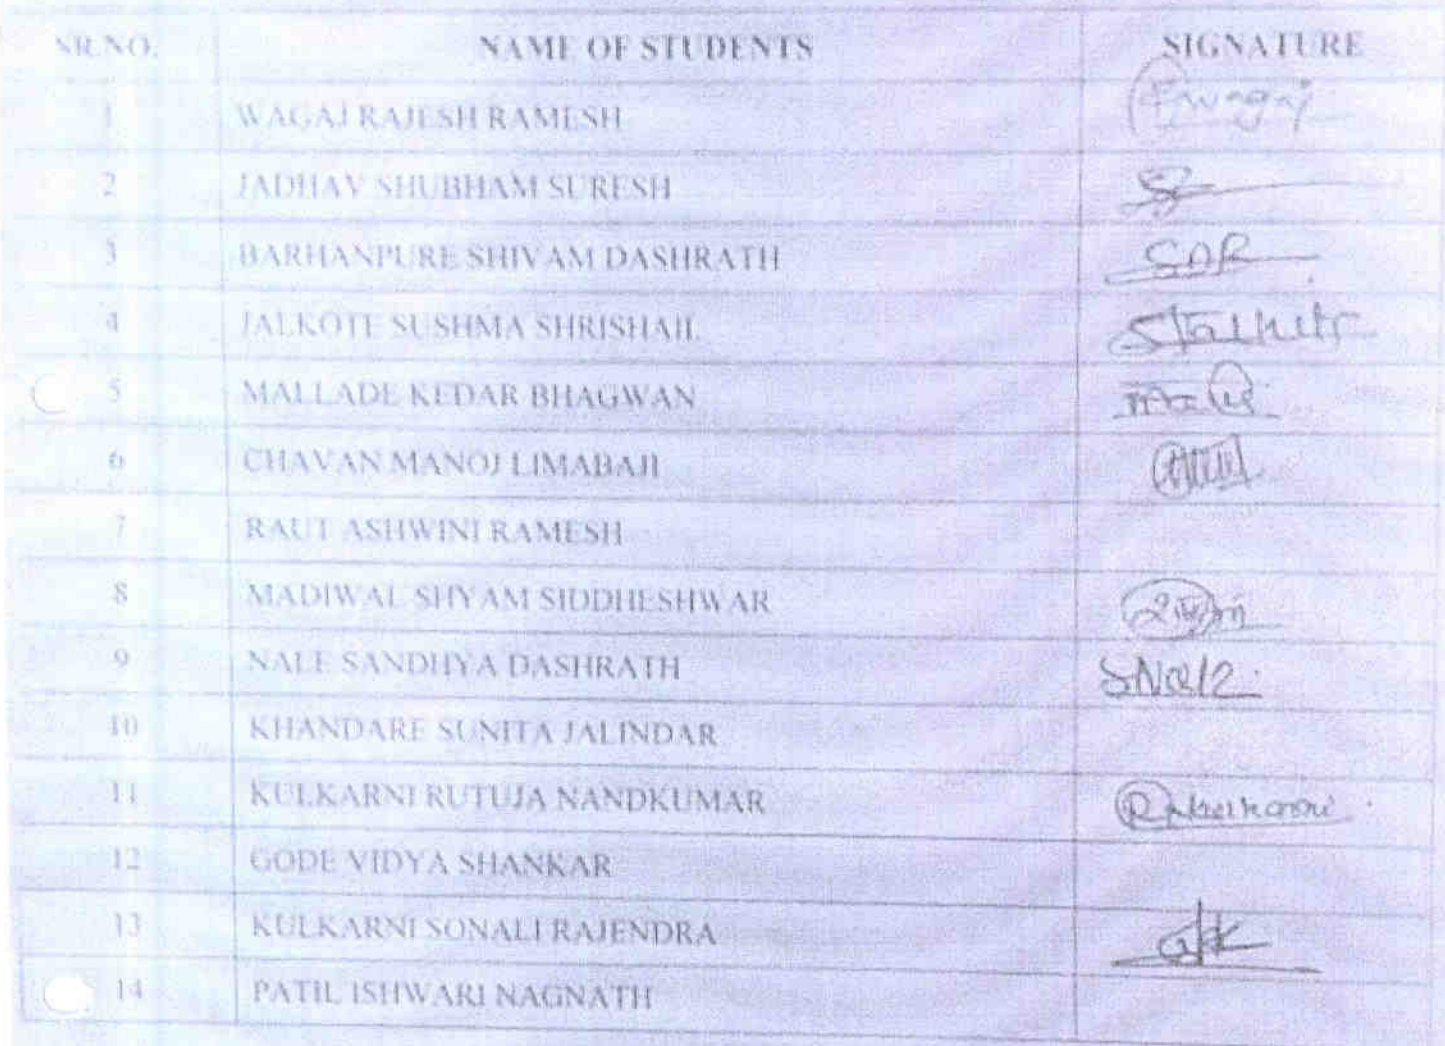 SR.NO. NAME OF STUDENTS SIGNATURE
1 WAGAJ RAJESH RAMESH Rwagaj
2 JADHAV SHUBHAM SURESH
3 BARHANPURE SHIVAM DASHRATH SDB
4 JALKOTE SUSHMA SHRISHAIL
5 MALLADE KEDAR BHAGWAN
6 CHAVAN MANOJ LIMABAJI
7 RAUT ASHWINI RAMESH
8 MADIWAL SHYAM SIDDHESHWAR
9 NALE SANDHYA DASHRATH SNale
10 KHANDARE SUNITA JALINDAR
11 KULKARNI RUTUJA NANDKUMAR
12 GODE VIDYA SHANKAR
13 KULKARNI SONALI RAJENDRA
14 PATIL ISHWARI NAGNATH